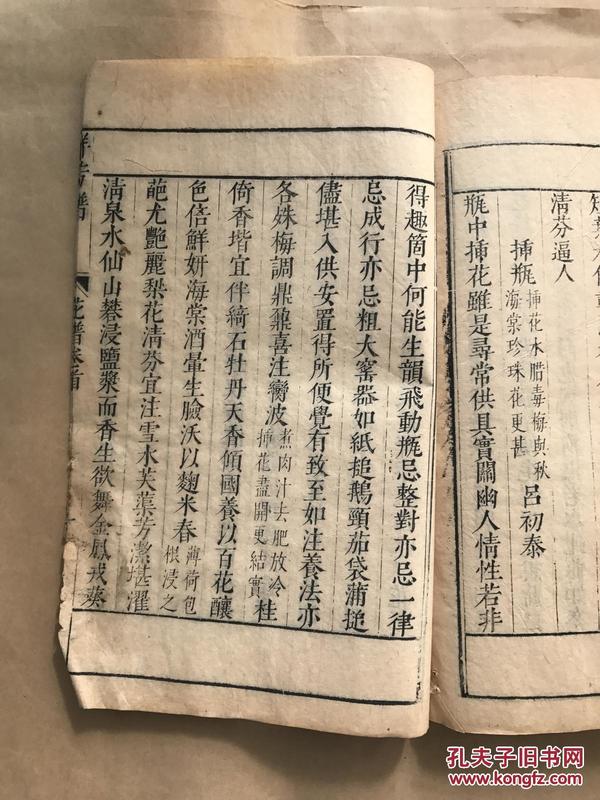 清芬逼人
插瓶 插花水腊毒梅與秋 海棠珍珠花更甚 呂初泰
瓶中插花雖是尋常供具實關幽人情性若非
得趣箇中何能生韻飛動瓶忌整對亦忌一律
忌成行亦忌粗大窰器如紙搥鵝頸茄袋蒲搥
儘堪入供安置得所便覺有致至如注養法亦
各姝梅調鼎鼐喜注臠波 煮肉汁去肥放冷 插花盡開更結實 桂
倚香堦宜伴綺石牡丹天香傾國養以百花釀
色倍鮮妍海棠酒暈生臉沃以麴米春 薄荷包 根浸之
葩尤艷麗梨花清芬宜注雪水芙蕖芳潔堪濯
清泉水仙山礬浸鹽漿而香生欲舞金鳳戎葵
羣芳譜
花譜卷首
孔夫子旧书网
www.kongfz.com